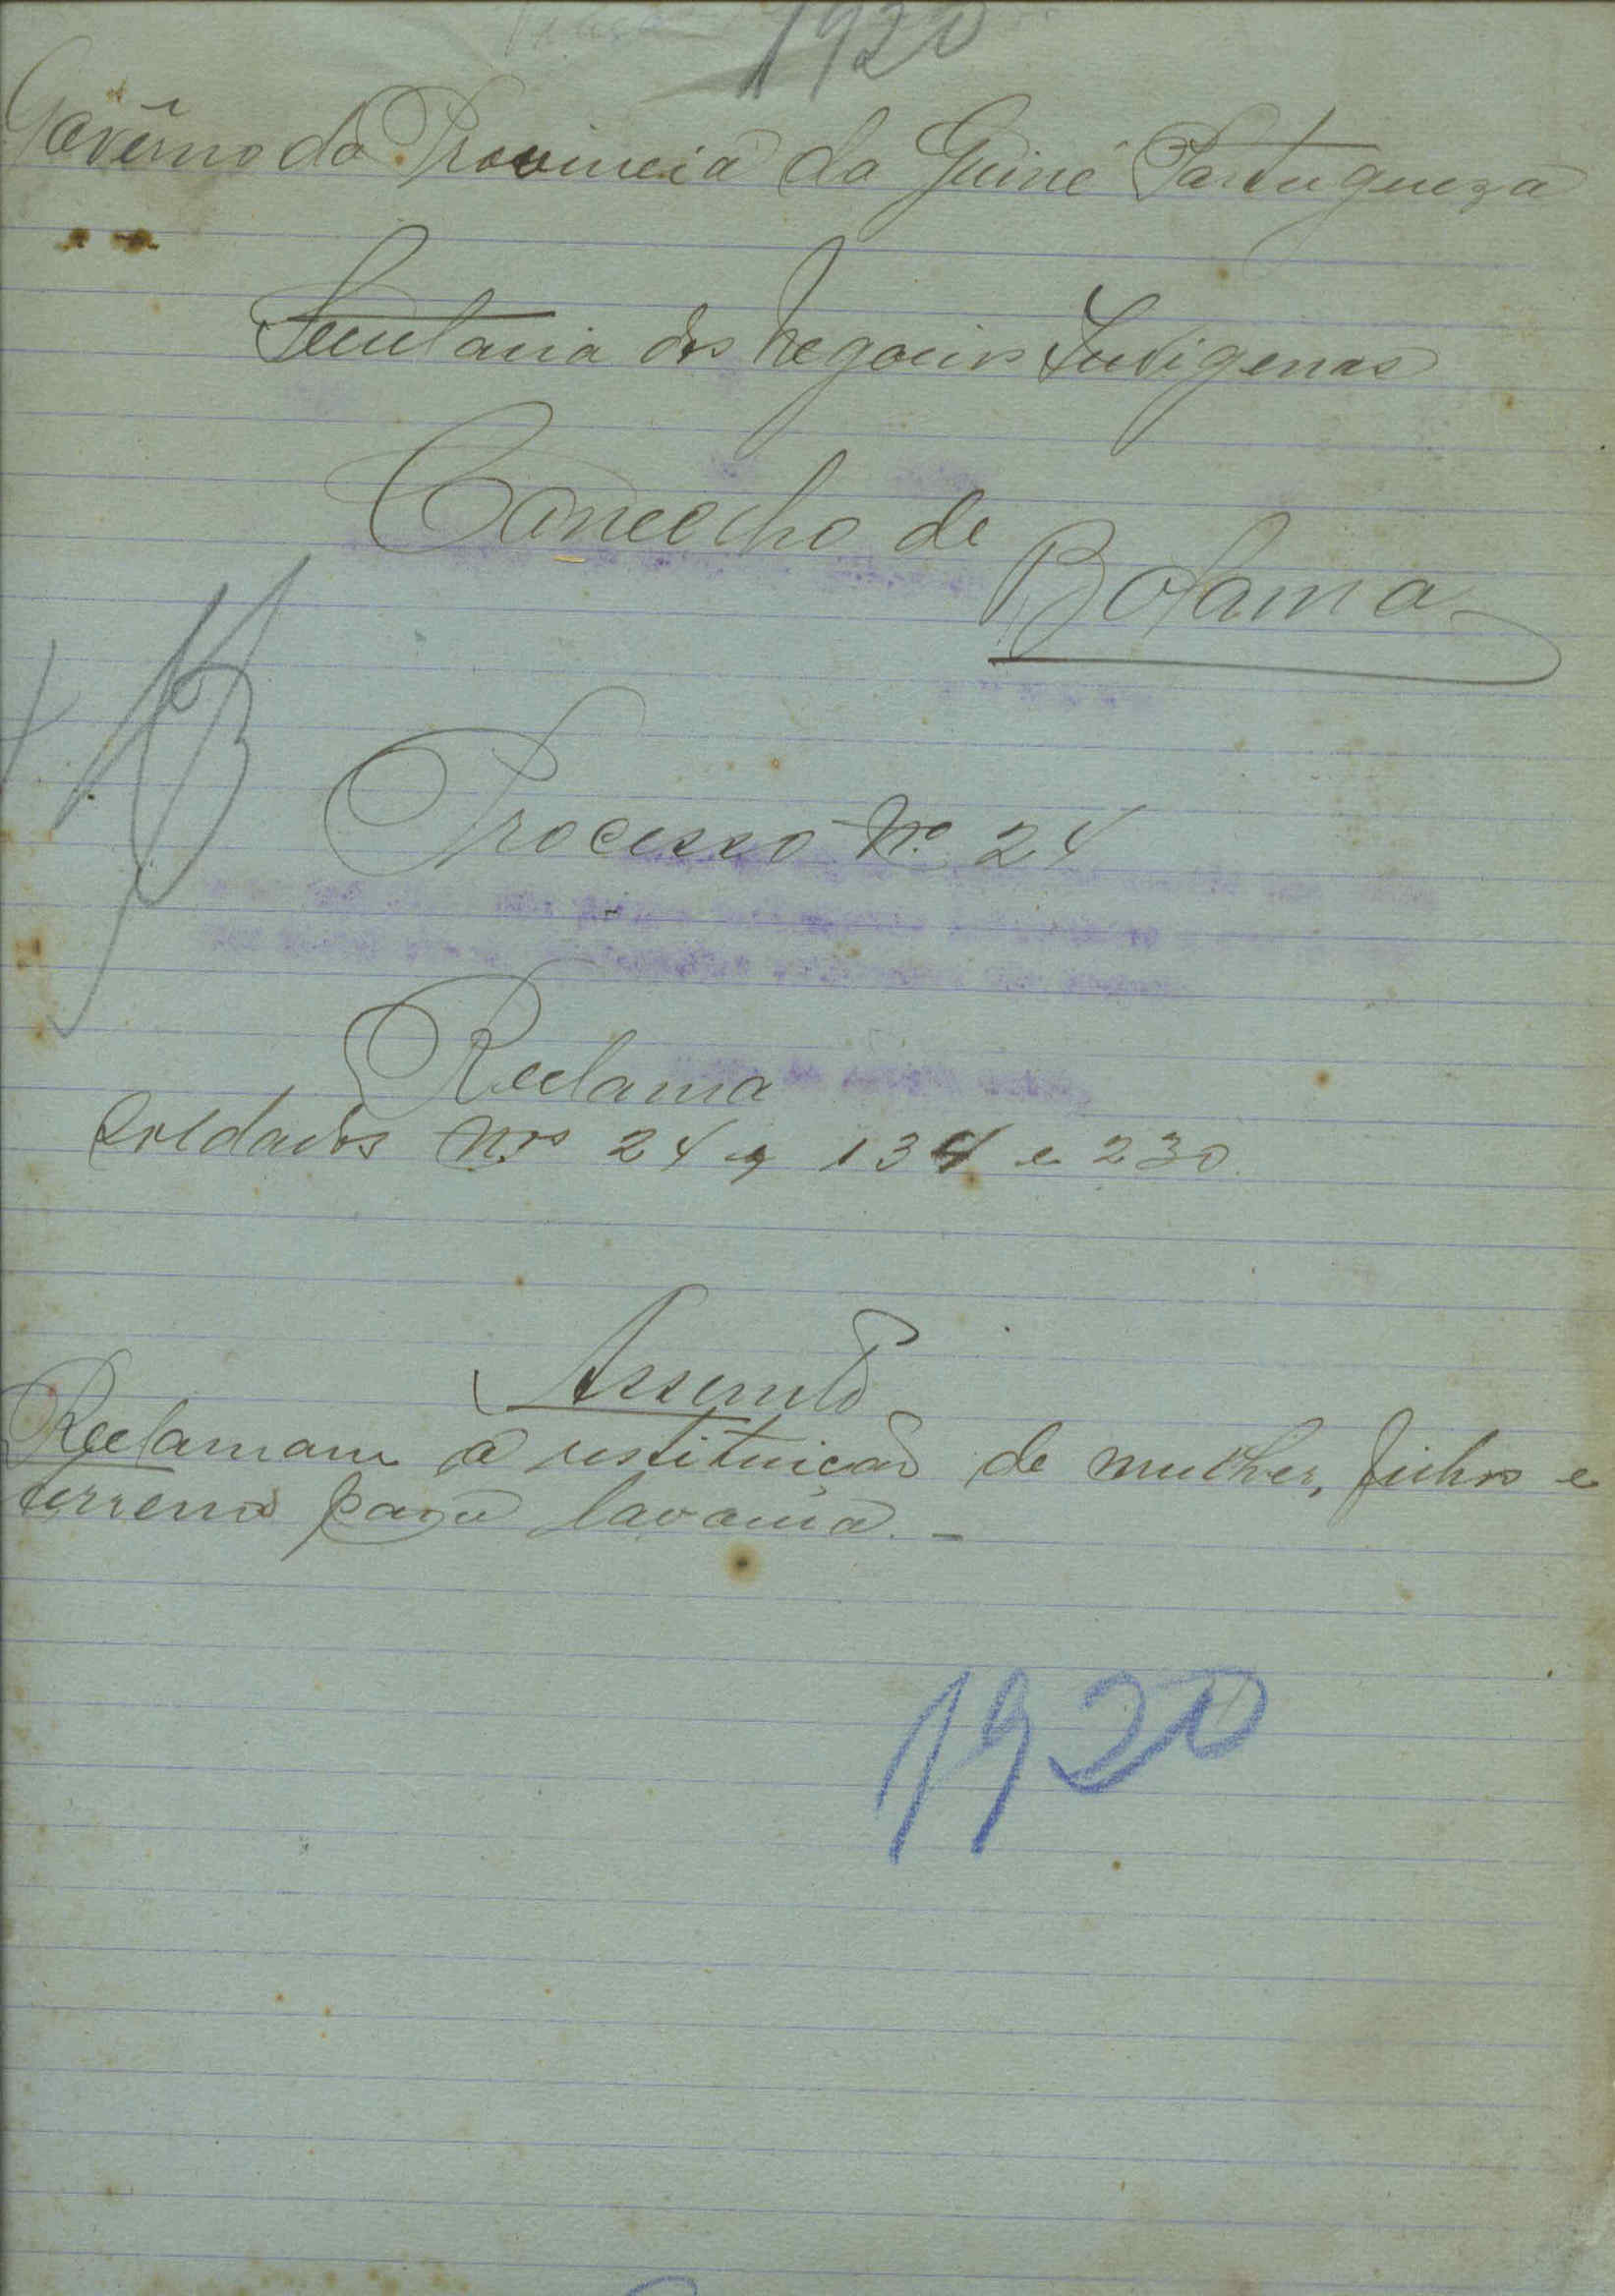 1920
Govêrno da Provincia da Guiné Portugueza
Secretaria dos Negocios Indigenas
Concelho de
Bolama
Processo Nº 24
Reclama
Soldados N.os 24 e 134 e 230
Assunto
Reclamam a restituição de mulher, filhos e
terreno para lavoura. –
1920